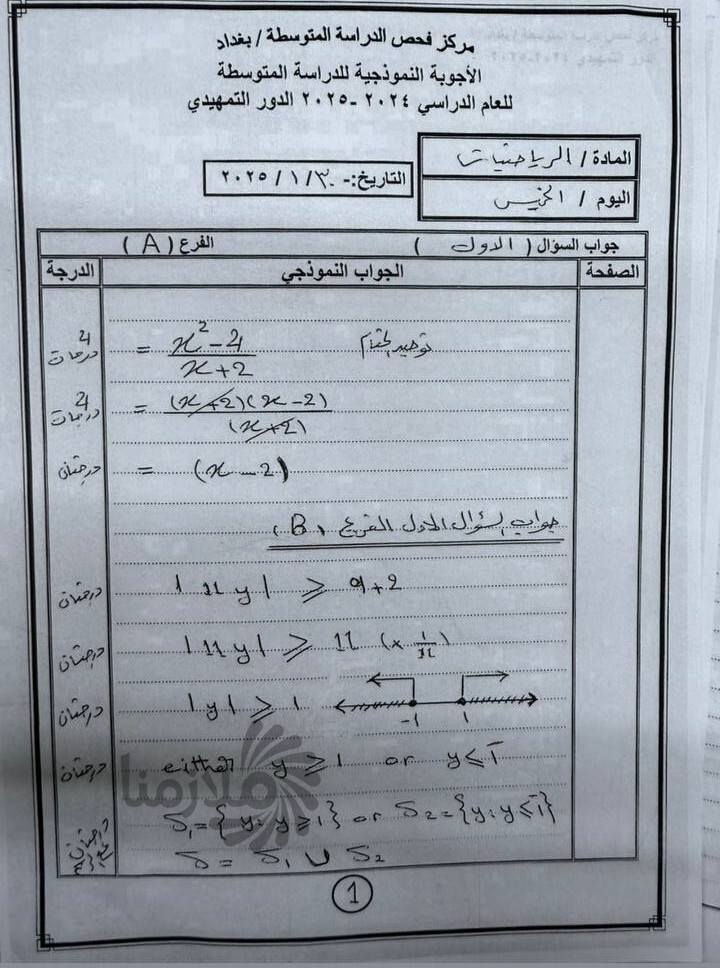 مركز فحص الدراسة المتوسطة / بغداد
الأجوبة النموذجية للدراسة المتوسطة
للعام الدراسي ٢٠٢٤ -٢٠٢٥ الدور التمهيدي
المادة / الرياضيات
اليوم / الخميس
التاريخ:- ٣٠ / ١ / ٢٠٢٥
جواب السؤال ( الاول ) الفرع ( A )
الصفحة الجواب النموذجي الدرجة
= x² - 4 / x + 2 توحيد المقام 4 درجات
= (x+2)(x-2) / (x+2) 4 درجات
= (x - 2) درجتان
جواب السؤال الاول الفرع (B)
|11 y| ≥ 9+2 درجتان
|11 y| ≥ 11 (× 1/11) درجتان
|y| ≥ 1 -1 1 درجتان
either y ≥ 1 or y ≤ -1 درجتان
S₁ = { y: y ≥ 1 } or S₂ = { y: y ≤ -1 } درجتان
S = S₁ ∪ S₂
ملازمنا
1